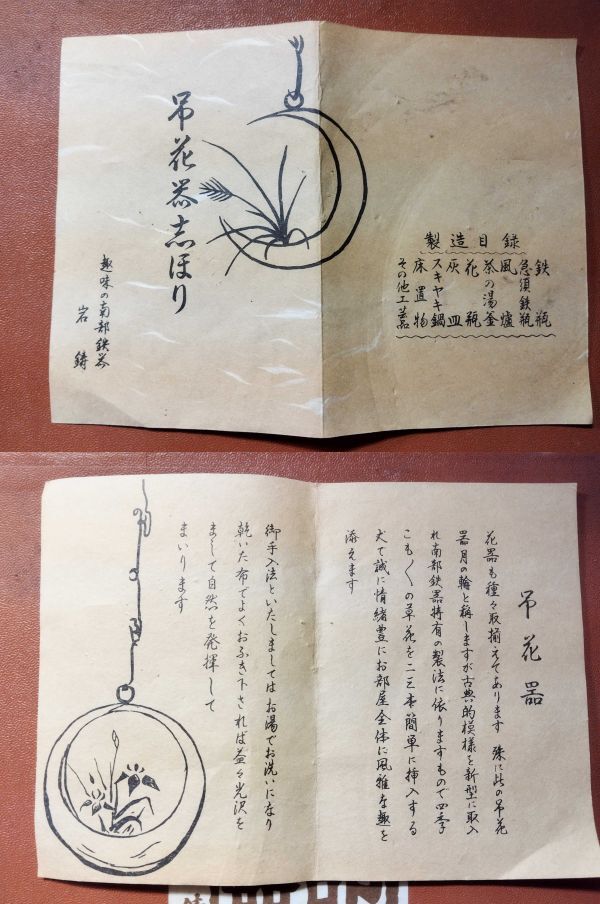 吊花器志ほり
趣味の南部鉄器
岩鋳
製造目録
鉄瓶
急須鉄瓶
風爐
茶の湯釜
花瓶
灰皿
スキヤキ鍋
床置物
その他工芸
吊花器
花器も種々取揃えてあります 殊に此の吊花
器月の輪と称しますが古典的模様を新型に取入
れ南部鉄器特有の製法に依りますもので四季
こも〴〵の草花を二三本簡単に挿入する
丈で誠に情緒豊にお部屋全体に風雅な趣を
添えます
御手入法といたしましてはお湯でお洗いになり
乾いた布でよくおふき下されば益々光沢を
まして自然を発揮して
まいります